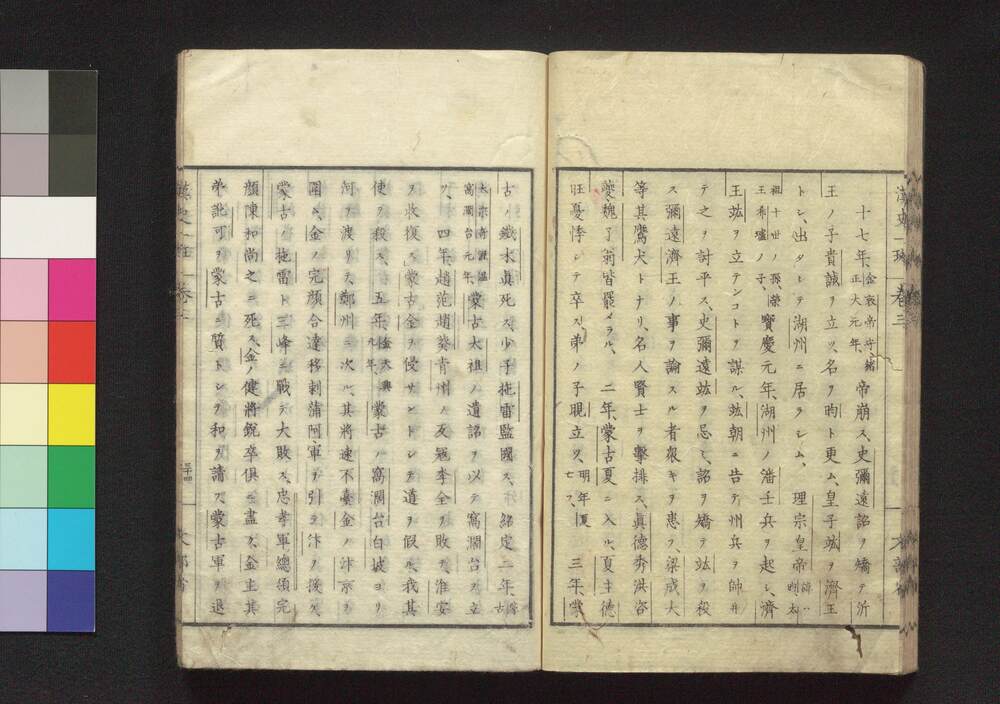 十七年、金哀帝守緒正大元年、帝崩ス、史彌遠詔ヲ矯テ沂
王ノ子貴誠ヲ立ツ、名ヲ昀ト更ム、皇子竑ヲ濟王
トシ、出タシテ湖州ニ居ラシム、理宗皇帝諱ハ昀太
祖十世ノ孫、榮王希瓐ノ子、寶慶元年、湖州ノ潘壬兵ヲ起シ、濟
王竑ヲ立テンコトヲ謀ル、竑朝ニ告テ州兵ヲ帥井
テ之ヲ討平ス、史彌遠竑ヲ忌ミ、詔ヲ矯テ竑ヲ殺
ス彌遠濟王ノ事ヲ論スル者衆キヲ患フ、梁成大
等其鷹犬トナリ、名人賢士ヲ擊排ス、眞德秀洪咨
夔魏了翁皆罷メラル、二年、蒙古夏ニ入ル、夏主德
旺憂悸シテ卒ス、弟ノ子睍立ツ、明年夏亡フ、三年、蒙
古ノ鐵木眞死ス、少子拖雷監國ス、紹定二年、蒙古
太宗奇渥溫窩濶台元年、蒙古太祖ノ遺詔ヲ以テ窩濶台ヲ立
ツ、四年、趙范趙葵青州ノ反冦李全ヲ敗テ淮安
ヲ收復ス、蒙古金ヲ侵サントシテ道ヲ假ル、我其
使ヲ殺ス、五年、金天興元年、蒙古ノ窩濶台白坡ヨリ
河ヲ渡リテ、鄭州ニ次ル、其將速不臺金ノ汴京ヲ
圍ム、金ノ完顔合達移剌蒲阿軍ヲ引テ汴ヲ援ク
蒙古ノ拖雷ト三峰ニ戰テ大敗ス、忠孝軍總領完
顔陳和尚之ニ死ス、金ノ健將銳卒俱ニ盡ク、金主其
弟訛可ヲ蒙古ニ質トシテ和ヲ請フ、蒙古軍ヲ退